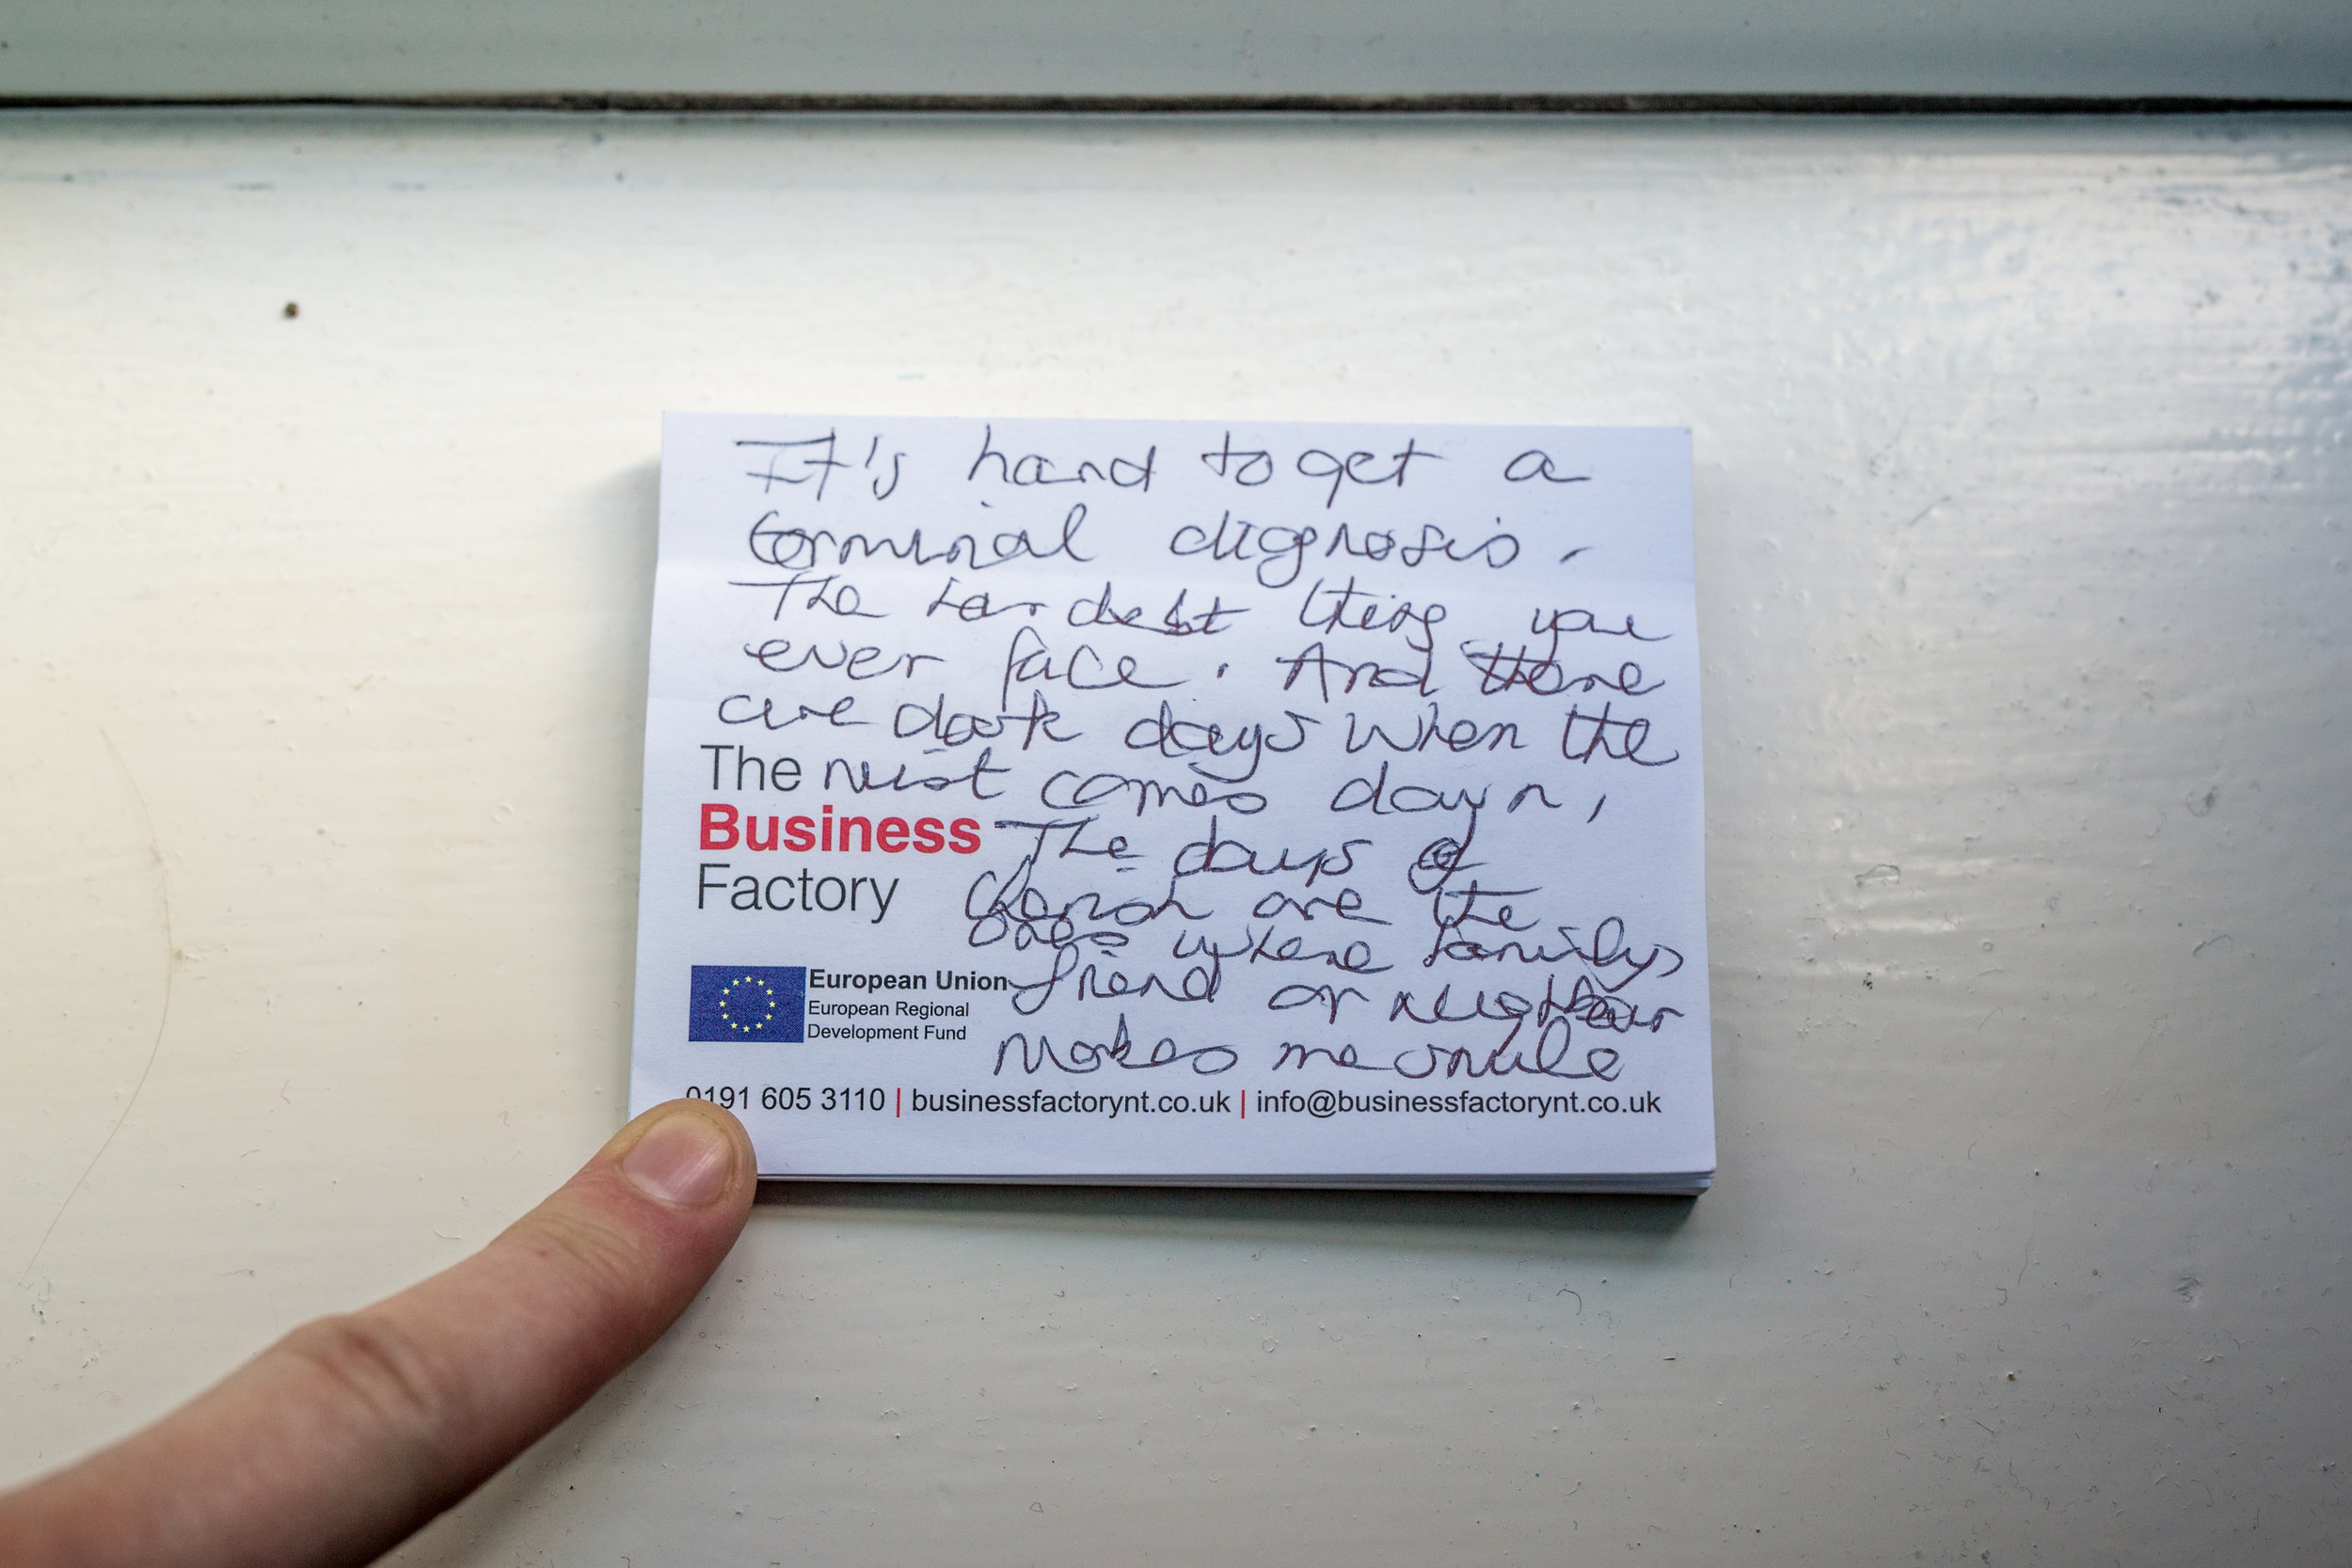 It's hard to get a
terminal diagnosis.
The hardest thing you
ever face. And there
are dark days when the
The
mist comes down,
Business
The days of
Factory
are the
ones where family,
friend or neighbour
makes me smile
European Union
European Regional
Development Fund
0191 605 3110 | businessfactorynt.co.uk | info@businessfactorynt.co.uk